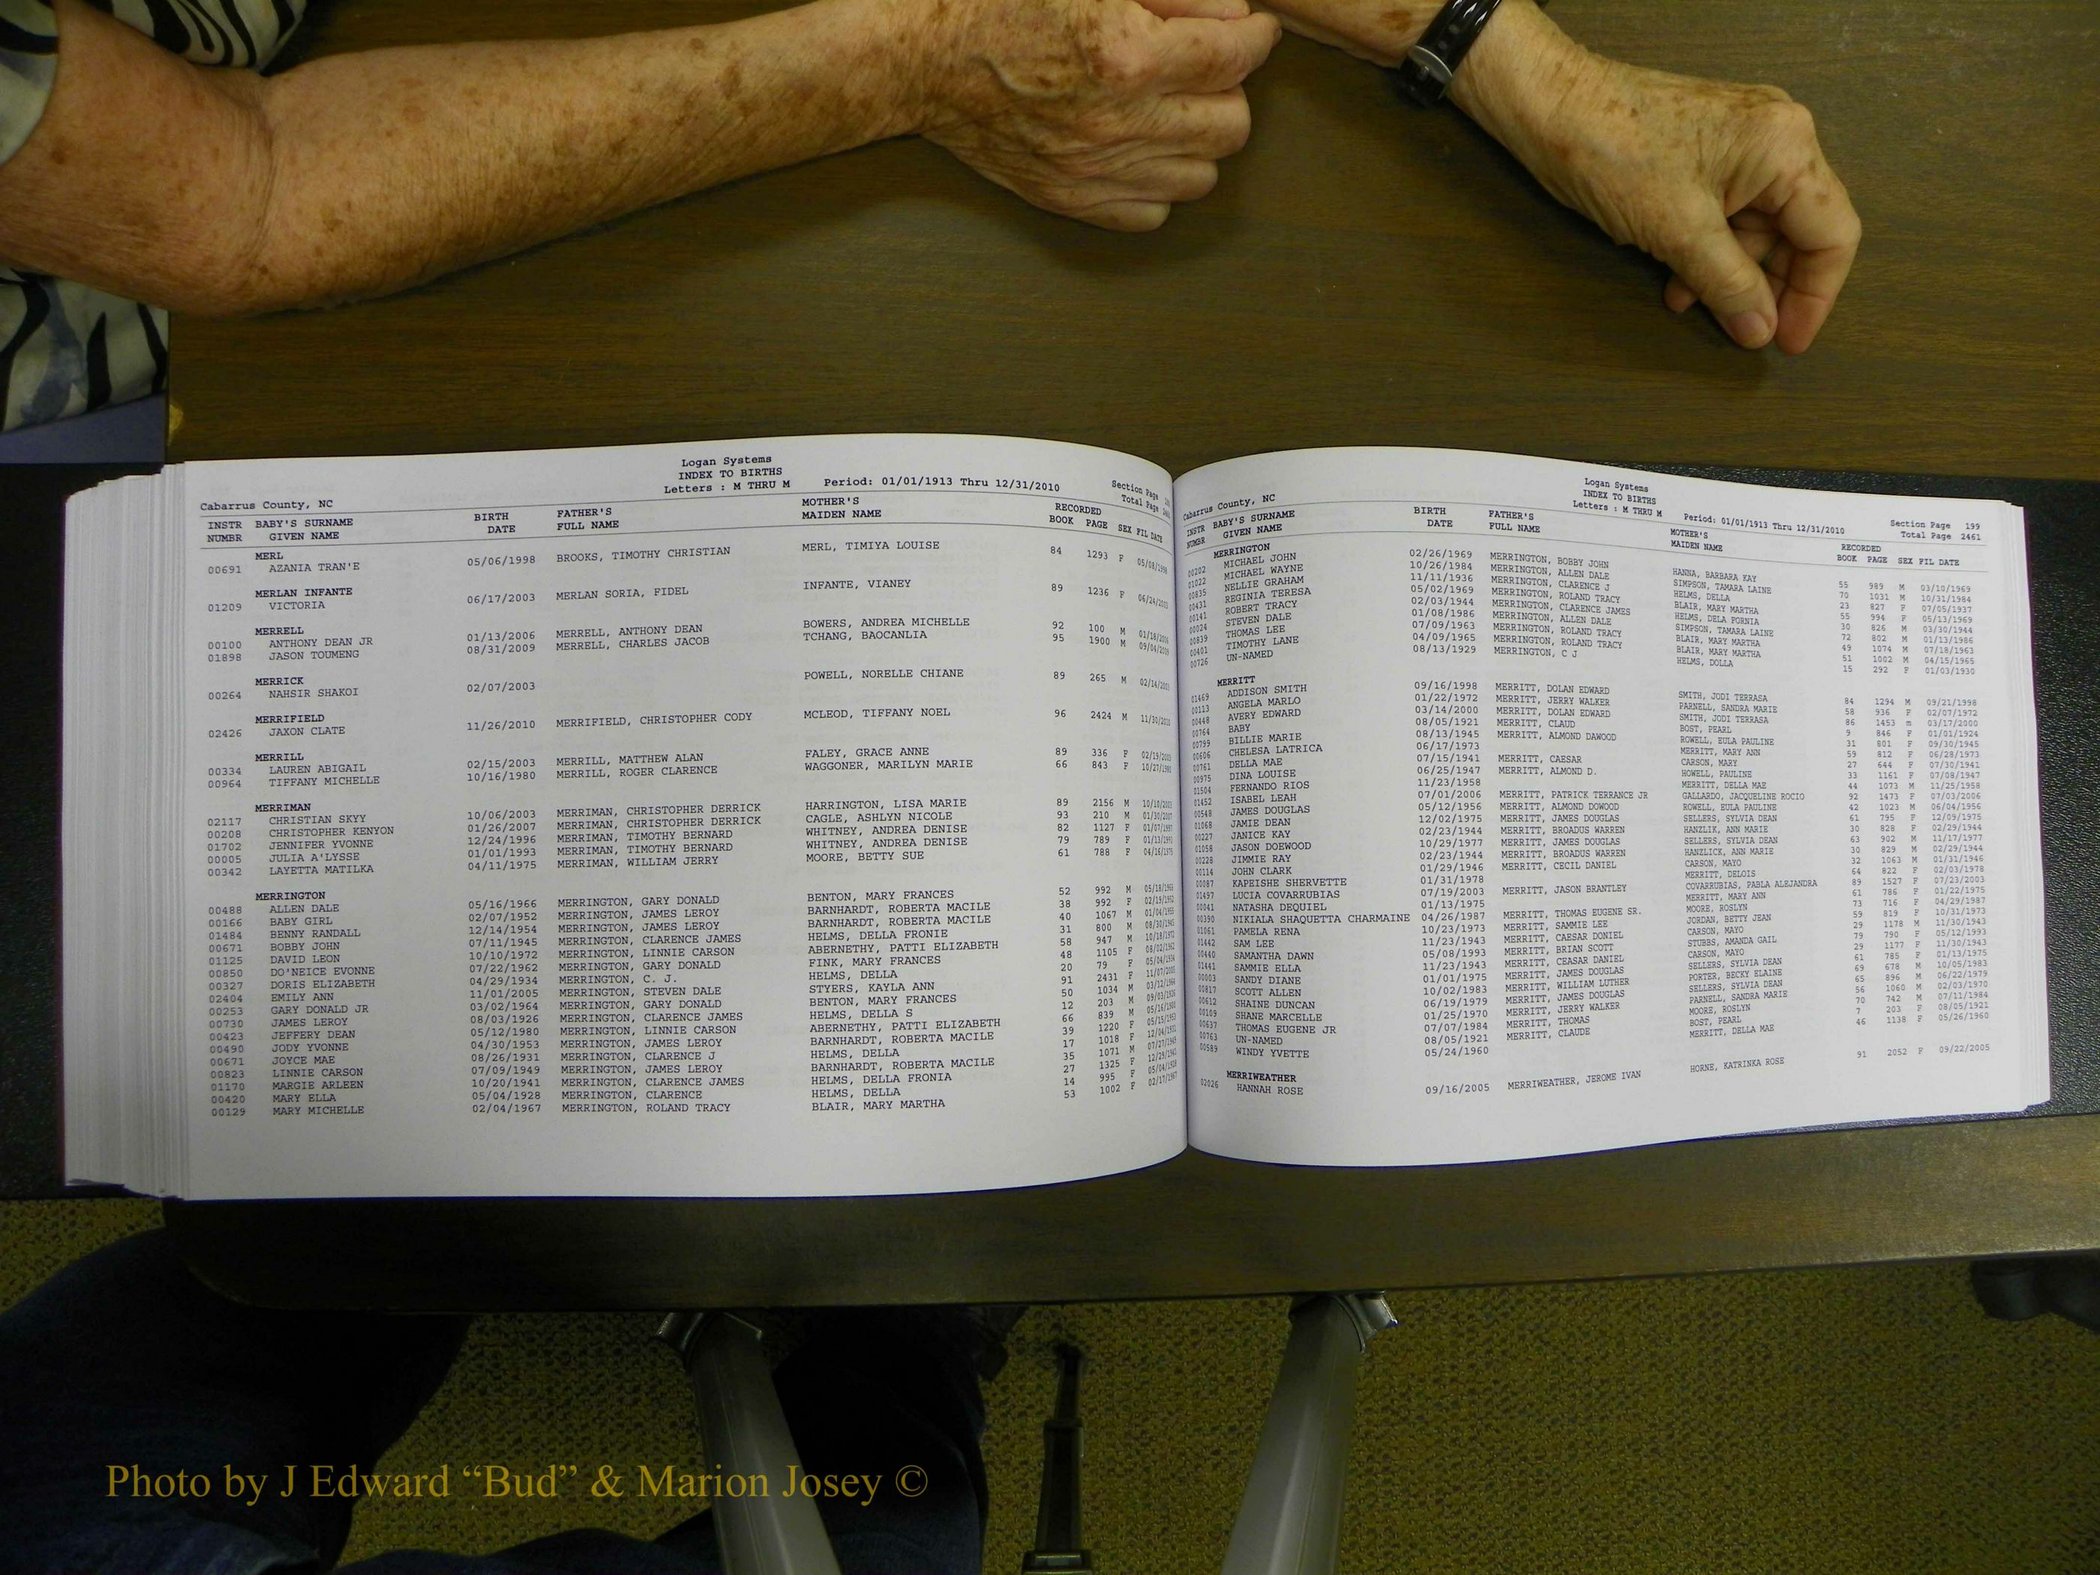 Logan Systems
INDEX TO BIRTHS
Letters : M THRU M
Cabarrus County, NC Period: 01/01/1913 Thru 12/31/2010 Section Page
Total Page
INSTR BABY'S SURNAME BIRTH FATHER'S MOTHER'S RECORDED
NUMBR GIVEN NAME DATE FULL NAME MAIDEN NAME BOOK PAGE SEX FIL DATE
MERL
00691 AZANIA TRAN'E 05/06/1998 BROOKS, TIMOTHY CHRISTIAN MERL, TIMIYA LOUISE 84 1293 F 05/08/1998
MERLAN INFANTE
01209 VICTORIA 06/17/2003 MERLAN SORIA, FIDEL INFANTE, VIANEY 89 1236 F 06/24/2003
MERRELL
00100 ANTHONY DEAN JR 01/13/2006 MERRELL, ANTHONY DEAN BOWERS, ANDREA MICHELLE 92 100 M 01/18/2006
01898 JASON TOUMENG 08/31/2009 MERRELL, CHARLES JACOB TCHANG, BAOCANLIA 95 1900 M 09/04/2009
MERRICK
00264 NAHSIR SHAKOI 02/07/2003 POWELL, NORELLE CHIANE 89 265 M 02/14/2003
MERRIFIELD
02426 JAXON CLATE 11/26/2010 MERRIFIELD, CHRISTOPHER CODY MCLEOD, TIFFANY NOEL 96 2424 M 11/30/2010
MERRILL
00334 LAUREN ABIGAIL 02/15/2003 MERRILL, MATTHEW ALAN FALEY, GRACE ANNE 89 336 F 02/19/2003
00964 TIFFANY MICHELLE 10/16/1980 MERRILL, ROGER CLARENCE WAGGONER, MARILYN MARIE 66 843 F 10/27/1980
MERRIMAN
02117 CHRISTIAN SKYY 10/06/2003 MERRIMAN, CHRISTOPHER DERRICK HARRINGTON, LISA MARIE 89 2156 M 10/10/2003
00208 CHRISTOPHER KENYON 01/26/2007 MERRIMAN, CHRISTOPHER DERRICK CAGLE, ASHLYN NICOLE 93 210 M 01/30/2007
01702 JENNIFER YVONNE 12/24/1996 MERRIMAN, TIMOTHY BERNARD WHITNEY, ANDREA DENISE 82 1127 F 01/07/1997
00005 JULIA A'LYSSE 01/01/1993 MERRIMAN, TIMOTHY BERNARD WHITNEY, ANDREA DENISE 79 789 F 01/13/1993
00342 LAYETTA MATILKA 04/11/1975 MERRIMAN, WILLIAM JERRY MOORE, BETTY SUE 61 788 F 04/16/1975
MERRINGTON
00488 ALLEN DALE 05/16/1966 MERRINGTON, GARY DONALD BENTON, MARY FRANCES 52 992 M 05/18/1966
00166 BABY GIRL 02/07/1952 MERRINGTON, JAMES LEROY BARNHARDT, ROBERTA MACILE 38 992 F 02/19/1952
01484 BENNY RANDALL 12/14/1954 MERRINGTON, JAMES LEROY BARNHARDT, ROBERTA MACILE 40 1067 M 01/04/1955
00671 BOBBY JOHN 07/11/1945 MERRINGTON, CLARENCE JAMES HELMS, DELLA FRONIE 31 800 M 08/30/1945
01125 DAVID LEON 10/10/1972 MERRINGTON, LINNIE CARSON ABERNETHY, PATTI ELIZABETH 58 947 M 10/18/1972
00850 DO'NEICE EVONNE 07/22/1962 MERRINGTON, GARY DONALD FINK, MARY FRANCES 48 1105 F 08/02/1962
00327 DORIS ELIZABETH 04/29/1934 MERRINGTON, C. J. HELMS, DELLA 20 79 F 05/04/1934
02404 EMILY ANN 11/01/2005 MERRINGTON, STEVEN DALE STYERS, KAYLA ANN 91 2431 F 11/07/2005
00253 GARY DONALD JR 03/02/1964 MERRINGTON, GARY DONALD BENTON, MARY FRANCES 50 1034 M 03/12/1964
00730 JAMES LEROY 08/03/1926 MERRINGTON, CLARENCE JAMES HELMS, DELLA S 12 203 M 09/03/1926
00423 JEFFERY DEAN 05/12/1980 MERRINGTON, LINNIE CARSON ABERNETHY, PATTI ELIZABETH 66 839 M
00490 JODY YVONNE 04/30/1953 MERRINGTON, JAMES LEROY BARNHARDT, ROBERTA MACILE 39 1220 F 05/15/1953
00671 JOYCE MAE 08/26/1931 MERRINGTON, CLARENCE J HELMS, DELLA 17 1018 F
00823 LINNIE CARSON 07/09/1949 MERRINGTON, JAMES LEROY BARNHARDT, ROBERTA MACILE 35 1071 M 07/27/1949
01170 MARGIE ARLEEN 10/20/1941 MERRINGTON, CLARENCE JAMES HELMS, DELLA FRONIA 27 1325 F
00420 MARY ELLA 05/04/1928 MERRINGTON, CLARENCE HELMS, DELLA 14 995 F
00129 MARY MICHELLE 02/04/1967 MERRINGTON, ROLAND TRACY BLAIR, MARY MARTHA 53 1002 F 02/17/1967
Logan Systems
INDEX TO BIRTHS
Letters : M THRU M
Cabarrus County, NC Period: 01/01/1913 Thru 12/31/2010 Section Page 199
Total Page 2461
INSTR BABY'S SURNAME BIRTH FATHER'S MOTHER'S RECORDED
NUMBR GIVEN NAME DATE FULL NAME MAIDEN NAME BOOK PAGE SEX FIL DATE
MERRINGTON
00202 MICHAEL JOHN 02/26/1969 MERRINGTON, BOBBY JOHN HANNA, BARBARA KAY 55 989 M 03/10/1969
01022 MICHAEL WAYNE 10/26/1984 MERRINGTON, ALLEN DALE SIMPSON, TAMARA LAINE 70 1031 M 10/31/1984
00835 NELLIE GRAHAM 11/11/1936 MERRINGTON, CLARENCE J HELMS, DELLA 23 827 F 07/05/1937
00431 REGINIA TERESA 05/02/1969 MERRINGTON, ROLAND TRACY BLAIR, MARY MARTHA 55 994 F 05/13/1969
00141 ROBERT TRACY 02/03/1944 MERRINGTON, CLARENCE JAMES HELMS, DELA FORNIA 30 826 M 03/30/1944
00024 STEVEN DALE 01/08/1986 MERRINGTON, ALLEN DALE SIMPSON, TAMARA LAINE 72 802 M 01/13/1986
00839 THOMAS LEE 07/09/1963 MERRINGTON, ROLAND TRACY BLAIR, MARY MARTHA 49 1074 M 07/18/1963
00401 TIMOTHY LANE 04/09/1965 MERRINGTON, ROLAND TRACY BLAIR, MARY MARTHA 51 1002 M 04/15/1965
00726 UN-NAMED 08/13/1929 MERRINGTON, C J HELMS, DOLLA 15 292 F 01/03/1930
MERRITT
01469 ADDISON SMITH 09/16/1998 MERRITT, DOLAN EDWARD SMITH, JODI TERRASA 84 1294 M 09/21/1998
00113 ANGELA MARLO 01/22/1972 MERRITT, JERRY WALKER PARNELL, SANDRA MARIE 58 936 F 02/07/1972
00448 AVERY EDWARD 03/14/2000 MERRITT, DOLAN EDWARD SMITH, JODI TERRASA 86 1453 m 03/17/2000
00764 BABY 08/05/1921 MERRITT, CLAUD BOST, PEARL 9 846 F 01/01/1924
00799 BILLIE MARIE 08/13/1945 MERRITT, ALMOND DAWOOD ROWELL, EULA PAULINE 31 801 F 09/30/1945
00606 CHELESA LATRICA 06/17/1973 MERRITT, MARY ANN 59 812 F 06/28/1973
00761 DELLA MAE 07/15/1941 MERRITT, CAESAR CARSON, MARY 27 644 F 07/30/1941
00975 DINA LOUISE 06/25/1947 MERRITT, ALMOND D. HOWELL, PAULINE 33 1161 F 07/08/1947
01504 FERNANDO RIOS 11/23/1958 MERRITT, DELLA MAE 44 1073 M 11/25/1958
01452 ISABEL LEAH 07/01/2006 MERRITT, PATRICK TERRANCE JR GALLARDO, JACQUELINE ROCIO 92 1473 F 07/03/2006
00548 JAMES DOUGLAS 05/12/1956 MERRITT, ALMOND DOWOOD ROWELL, EULA PAULINE 42 1023 M 06/04/1956
01068 JAMIE DEAN 12/02/1975 MERRITT, JAMES DOUGLAS SELLERS, SYLVIA DEAN 61 795 F 12/09/1975
00227 JANICE KAY 02/23/1944 MERRITT, BROADUS WARREN HANZLIK, ANN MARIE 30 828 F 02/29/1944
01058 JASON DOEWOOD 10/29/1977 MERRITT, JAMES DOUGLAS SELLERS, SYLVIA DEAN 63 902 M 11/17/1977
00228 JIMMIE RAY 02/23/1944 MERRITT, BROADUS WARREN HANZLICK, ANN MARIE 30 829 M 02/29/1944
00114 JOHN CLARK 01/29/1946 MERRITT, CECIL DANIEL CARSON, MAYO 32 1063 M 01/31/1946
00087 KAPEISHE SHERVETTE 01/31/1978 MERRITT, DELOIS 64 822 F 02/03/1978
01497 LUCIA COVARRUBIAS 07/19/2003 MERRITT, JASON BRANTLEY COVARRUBIAS, PABLA ALEJANDRA 89 1527 F 07/23/2003
00041 NATASHA DEQUIEL 01/13/1975 MERRITT, MARY ANN 61 786 F 01/22/1975
00390 NIKIALA SHAQUETTA CHARMAINE 04/26/1987 MERRITT, THOMAS EUGENE SR. MOORE, ROSLYN 73 716 F 04/29/1987
01061 PAMELA RENA 10/23/1973 MERRITT, SAMMIE LEE JORDAN, BETTY JEAN 59 819 F 10/31/1973
01442 SAM LEE 11/23/1943 MERRITT, CAESAR DONIEL CARSON, MAYO 29 1178 M 11/30/1943
00440 SAMANTHA DAWN 05/08/1993 MERRITT, BRIAN SCOTT STUBBS, AMANDA GAIL 79 790 F 05/12/1993
01441 SAMMIE ELLA 11/23/1943 MERRITT, CEASAR DANIEL CARSON, MAYO 29 1177 F 11/30/1943
00003 SANDY DIANE 01/01/1975 MERRITT, JAMES DOUGLAS SELLERS, SYLVIA DEAN 61 785 F 01/13/1975
00817 SCOTT ALLEN 10/02/1983 MERRITT, WILLIAM LUTHER PORTER, BECKY ELAINE 69 678 M 10/05/1983
00612 SHAINE DUNCAN 06/19/1979 MERRITT, JAMES DOUGLAS SELLERS, SYLVIA DEAN 65 896 M 06/22/1979
00109 SHANE MARCELLE 01/25/1970 MERRITT, JERRY WALKER PARNELL, SANDRA MARIE 56 1060 M 02/03/1970
00637 THOMAS EUGENE JR 07/07/1984 MERRITT, THOMAS MOORE, ROSLYN 70 742 M 07/11/1984
00763 UN-NAMED 08/05/1921 MERRITT, CLAUDE BOST, PEARL 7 203 F 08/05/1921
00589 WINDY YVETTE 05/24/1960 MERRITT, DELLA MAE 46 1138 F 05/26/1960
MERRIWEATHER
02026 HANNAH ROSE 09/16/2005 MERRIWEATHER, JEROME IVAN HORNE, KATRINKA ROSE 91 2052 F 09/22/2005
Photo by J Edward “Bud” & Marion Josey ©